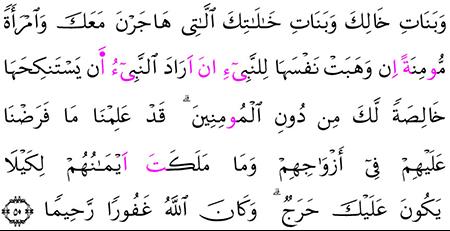 وَبَنَاتِ خَالِكَ وَبَنَاتِ خَٰلَٰتِكَ ٱلَّٰتِى هَاجَرْنَ مَعَكَ وَٱمْرَأَةً
مُّومِنَةً إِن وَهَبَتْ نَفْسَهَا لِلنَّبِىٓءِ انَ اَرَادَ ٱلنَّبِىٓءُ أَن يَسْتَنكِحَهَا
خَالِصَةً لَّكَ مِن دُونِ ٱلْمُومِنِينَ ۗ قَدْ عَلِمْنَا مَا فَرَضْنَا
عَلَيْهِمْ فِىٓ أَزْوَٰجِهِمْ وَمَا مَلَكَتَ اَيْمَٰنُهُمْ لِكَيْلَا
يَكُونَ عَلَيْكَ حَرَجٌ ۗ وَكَانَ ٱللَّهُ غَفُورًا رَّحِيمًا ٥٠